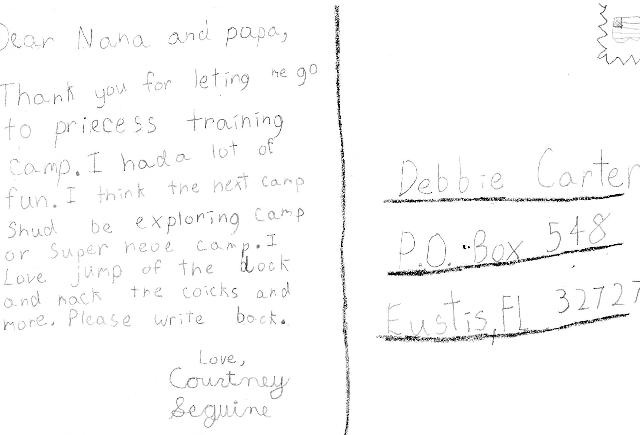 Dear Nana and papa,
Thank you for leting me go
to priecess training
camp. I had a lot of
fun. I think the next camp
Shud be exploring camp
or Super heve camp. I
Love jump of the dock
and mack the coicks and
more. Please write back.
Love,
Courtney
Seguine
Debbie Carter
P.O. Box 548
Eustis, FL 32727